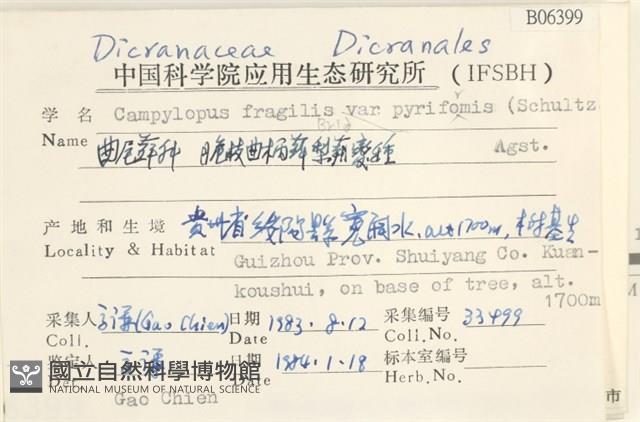 B06399
Dicranaceae Dicranales
中国科学院应用生态研究所 (IFSBH)
学名 Campylopus fragilis var pyrifomis (Schultz
r
Name 曲尾藓科 脆枝曲柄藓梨蒴变種 Agst.
产地和生境 贵州省绥阳县宽阔水,alt1700m,树基生
Locality & Habitat Guizhou Prov. Shuiyang Co. Kuan-
koushui, on base of tree, alt.
1700m
采集人 高谦(Gao Chien) 日期 1983.8.12 采集编号 33499
Coll. Date Coll.No.
鉴定人 高谦 日期 1984.1.18 标本室编号
Det Date Herb.No.
Gao Chien
國立自然科學博物館
NATIONAL MUSEUM OF NATURAL SCIENCE
市